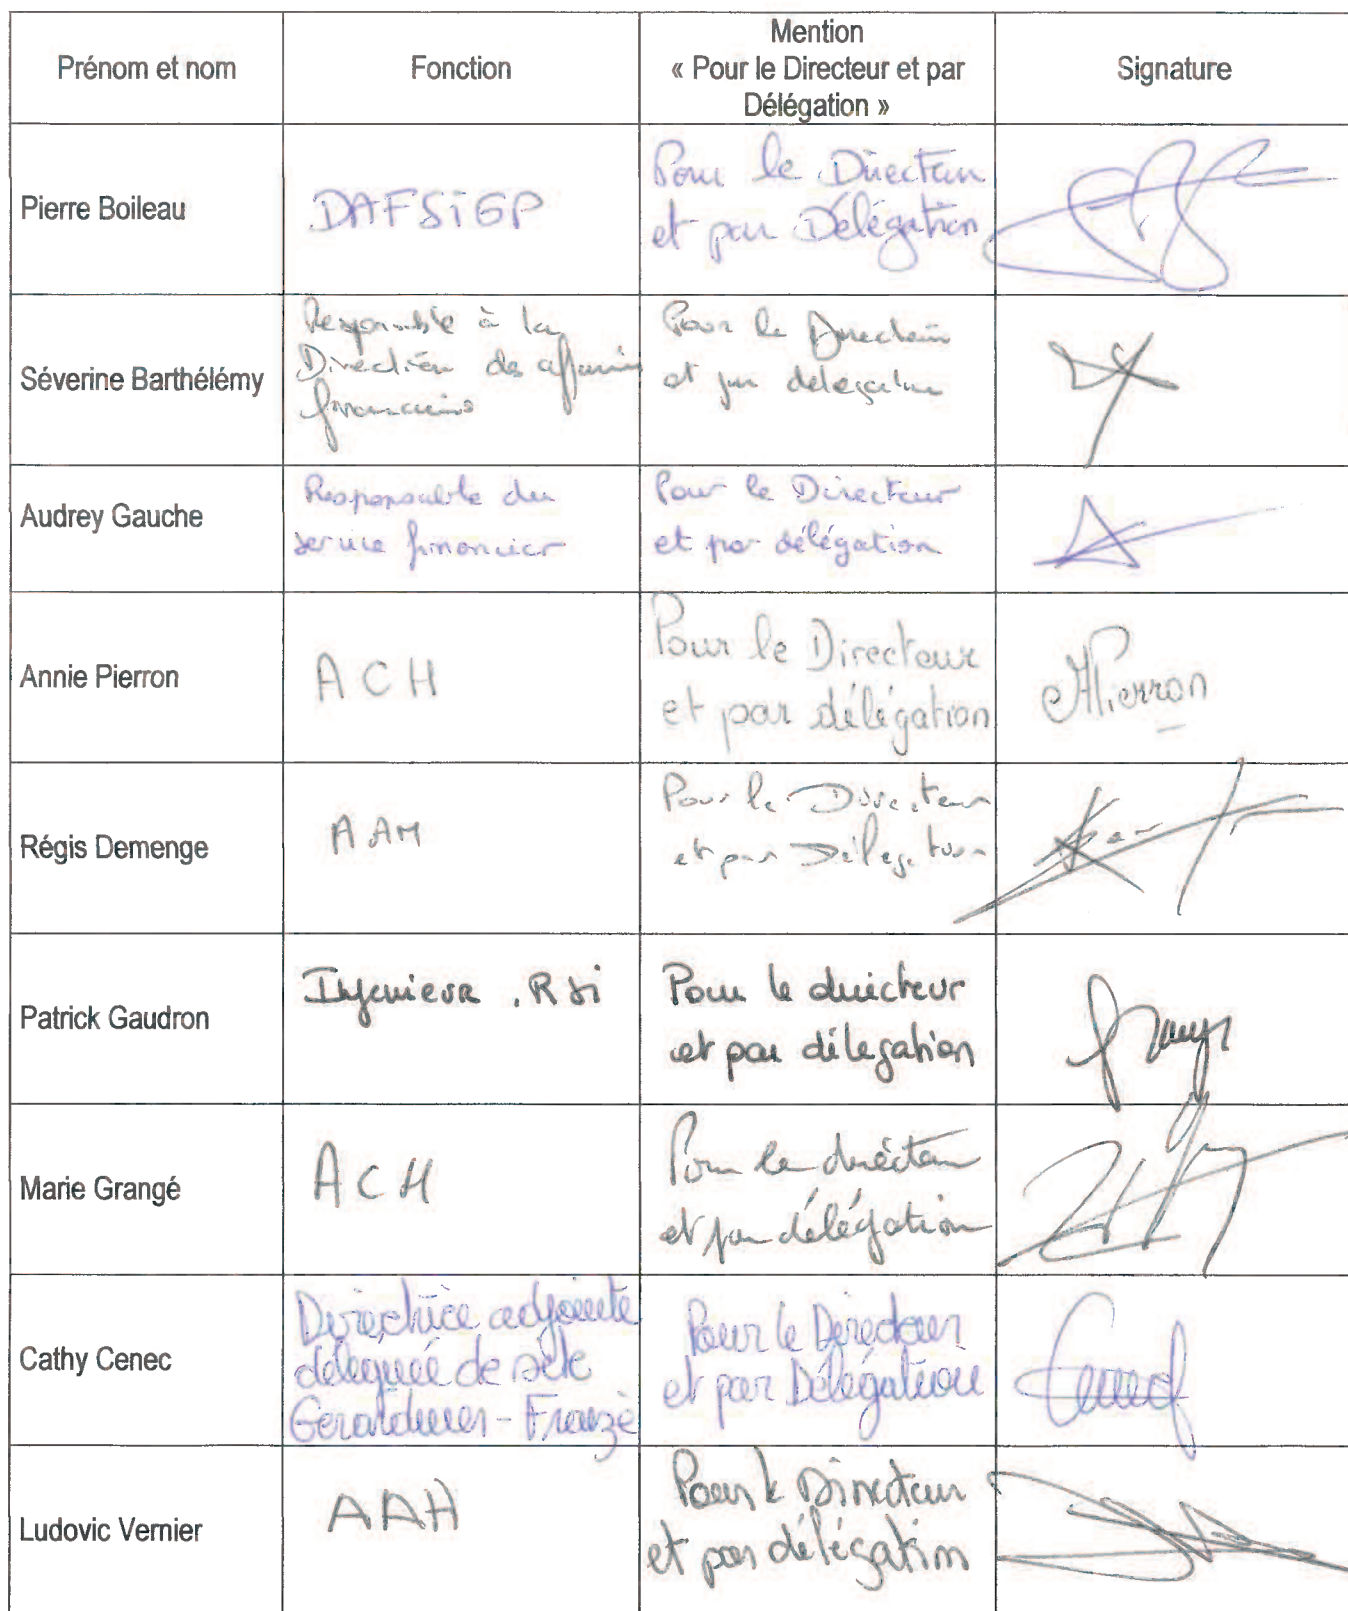 Prénom et nom
Fonction
Mention
« Pour le Directeur et par
Délégation »
Signature
Pierre Boileau
DAFSiGP
Pour le Directeur
et par Délégation
Séverine Barthélémy
Responsable à la
Direction des affaires
financières
Pour le Directeur
et par délégation
Audrey Gauche
Responsable du
service financier
Pour le Directeur
et par délégation
Annie Pierron
ACH
Pour le Directeur
et par délégation
APierron
Régis Demenge
AAH
Pour le Directeur
et par Délégation
Patrick Gaudron
Ingenieur . RSi
Pour le directeur
et par délegation
Marie Grangé
ACH
Pour le directeur
et par délégation
Cathy Cenec
Directrice adjointe
déléguée de site
Gerardmer - Fraize
Pour le Directeur
et par Délégation
Cenec
Ludovic Vernier
AAH
Pour le Directeur
et par délégation